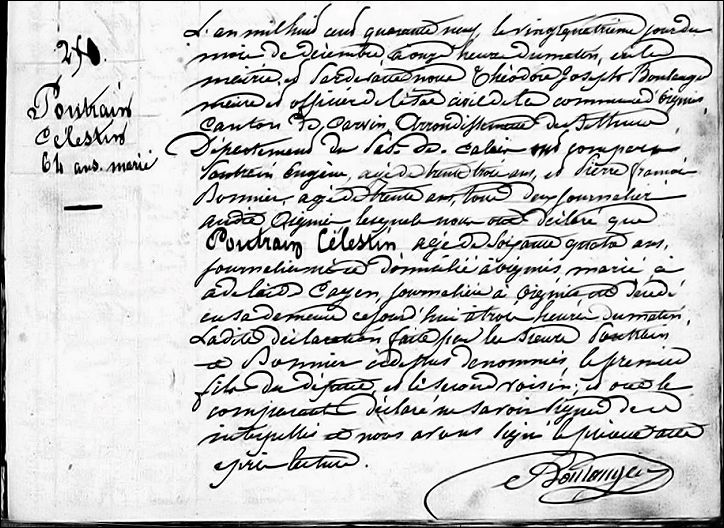 250
Poutrain
Célestin
64 ans. marié
L'an mil huit cent quarante neuf, le vingt quatrième jour du
mois de décembre à onze heures du matin, en la
mairie et Pardevant nous Théodore Joseph Boulanger
maire et officier de l'état civil de la commune d'Oignies,
Canton de Carvin, Arrondissement de Béthune
Département du Pas-de-Calais ont comparu
Poutrain Eugène, agé de trente trois ans, et Pierre François
Bonnier, agé de trente ans, tous deux journaliers
audit Oignies, lesquels nous ont déclaré que
Poutrain Célestin agé de soixante quatre ans,
journalier né et domicilié à Oignies, marié à
Cayen, journalière à Oignies, est décédé
en sa demeure ce jour d'hui à trois heures du matin,
Ladite déclaration faite par les Sieurs Poutrain
et Bonnier ci-dessus dénommés, le premier
fils du défunt, et le second voisin, et ont les
comparants déclaré ne savoir signer de ce
interpellés et nous avons signé le présent acte
après lecture.
Boulanger